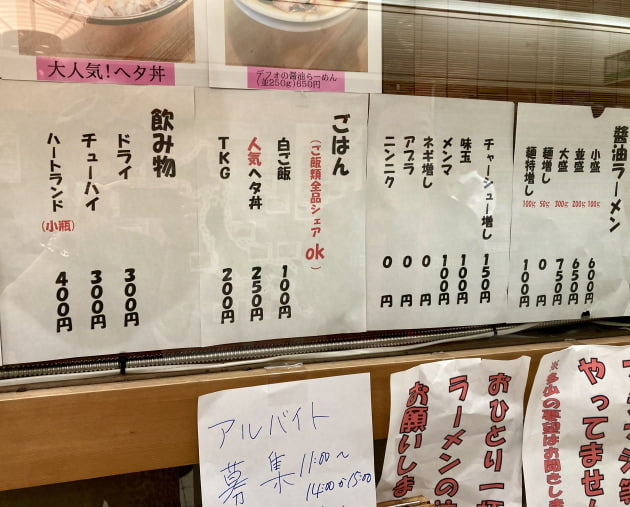 大人気！ヘタ丼
デフォの醤油らーめん
(並250g)650円
醤油ラーメン
小盛 100g 600円
並盛 200g 650円
大盛 300g 750円
麺増し 50g 0円
麺特増し 100g 100円
チャーシュー増し 150円
味玉 100円
メンマ 100円
ネギ増し 0円
アブラ 0円
ニンニク 0円
ごはん
(ご飯類全品シェアok)
白ご飯 100円
人気ヘタ丼 250円
TKG 200円
飲み物
ドライ 300円
チューハイ 300円
ハートランド(小瓶) 400円
やってません
※多少の要望はお聞きしま
おひとり一
ラーメンの
お願いしま
アルバイト
募集 11:00～
14:00か15:00